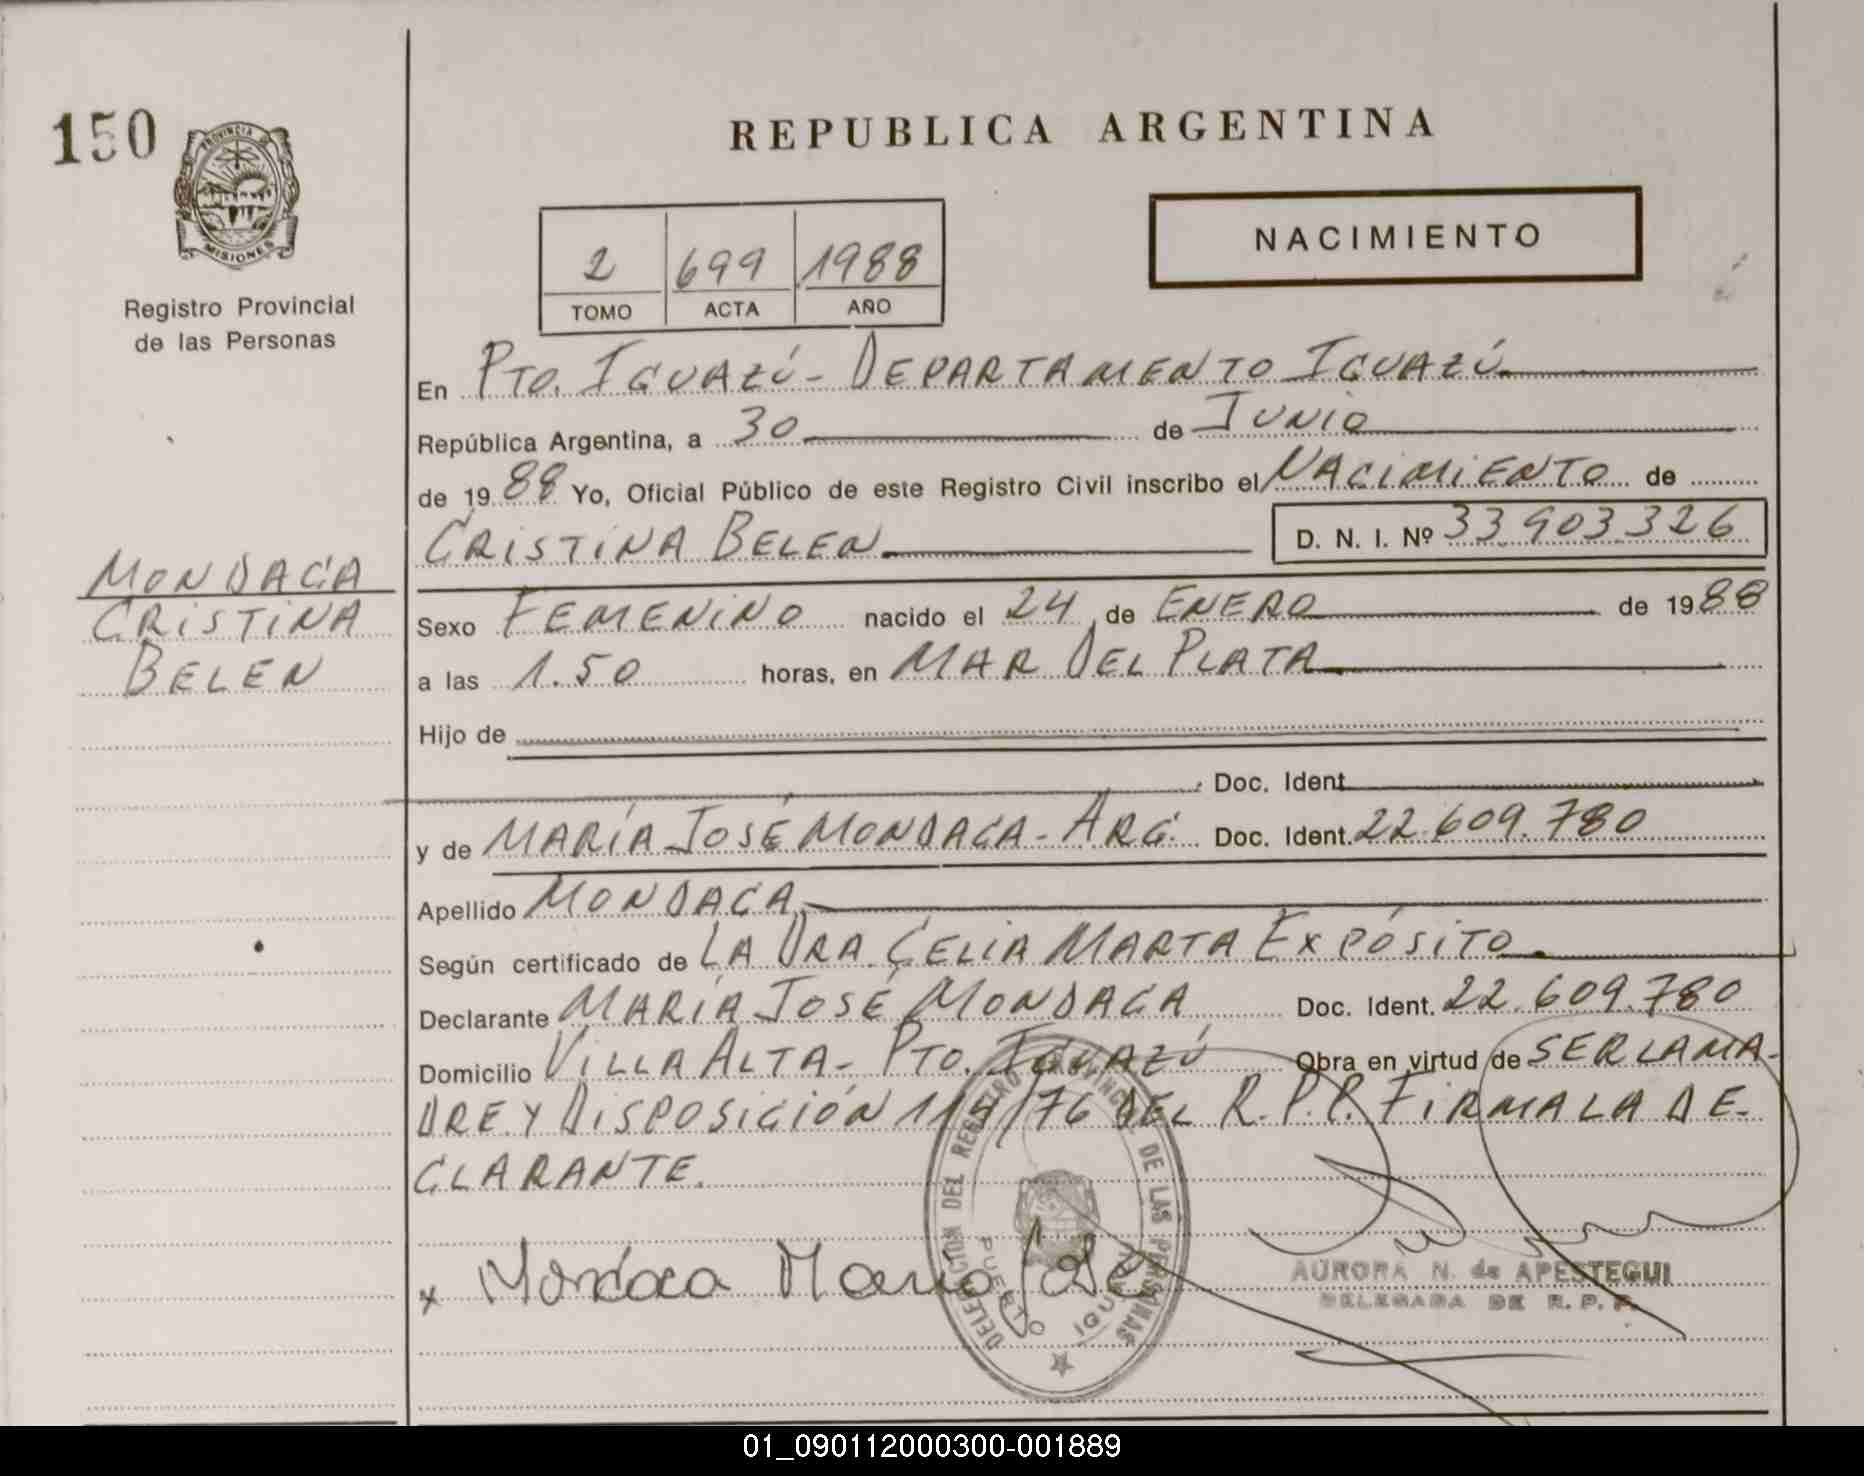 150
PROVINCIA DE
MISIONES
Registro Provincial
de las Personas
REPUBLICA ARGENTINA
NACIMIENTO
2 699 1988
TOMO ACTA AÑO
En PTO. IGUAZÚ - DEPARTAMENTO IGUAZÚ
República Argentina, a 30 de JUNIO
de 1988 Yo, Oficial Público de este Registro Civil inscribo el NACIMIENTO de
CRISTINA BELEN D. N. I. Nº 33.903.326
MONDACA
CRISTINA
BELEN
Sexo FEMENINO nacido el 24 de ENERO de 1988
a las 1.50 horas, en MAR DEL PLATA
Hijo de
Doc. Ident.
y de MARÍA JOSÉ MONDACA - ARG. Doc. Ident. 22.609.780
Apellido MONDACA
Según certificado de LA DRA. CELIA MARTA EXPÓSITO
Declarante MARÍA JOSÉ MONDACA Doc. Ident. 22.609.780
Domicilio VILLA ALTA - PTO. IGUAZÚ Obra en virtud de SER LA MA-
DRE Y DISPOSICIÓN /76 DEL R.P.P. FIRMA LA DE-
CLARANTE.
x Mondaca Maria José
DELEGACION DEL REGISTRO PROVINCIAL DE LAS PERSONAS
PUERTO IGUAZU
AURORA N. de APESTEGUI
DELEGADA DE R. P. P.
01_090112000300-001889